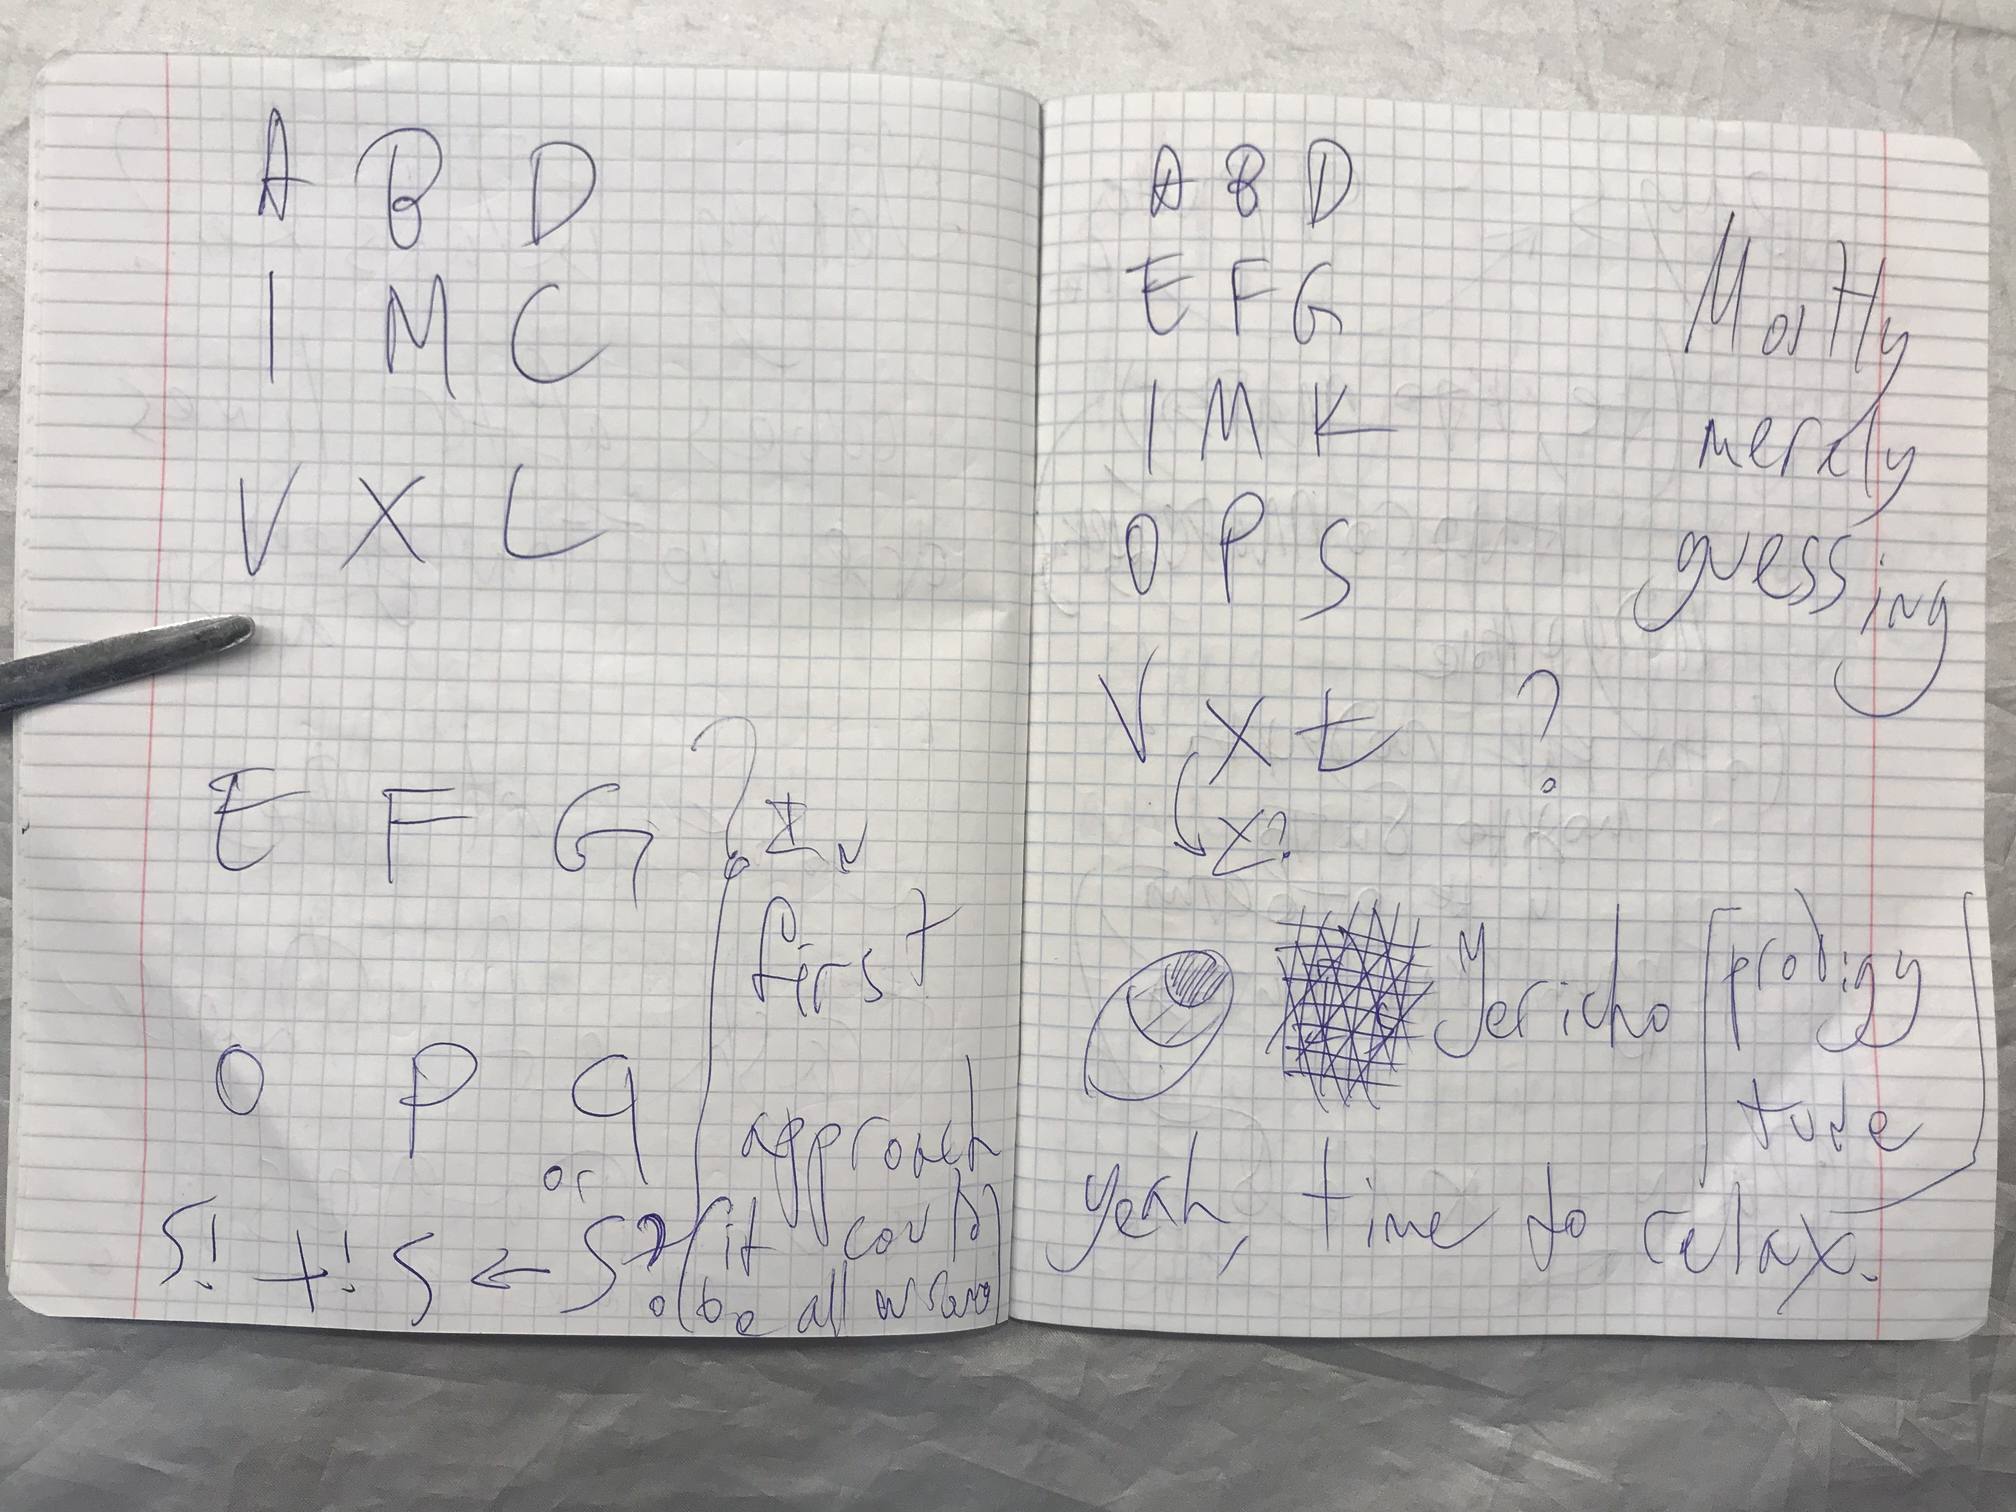 A B D
I M C
V X L
E F G ?
In
first
O P q
or
approach
S! +! S ← S?
(it could
be all wrong)
A B D
E F G
I M K
O P S
V X t ?
Z?
Mostly
merely
guessing
Jericho [prodigy
tude]
yeah, time to relax.